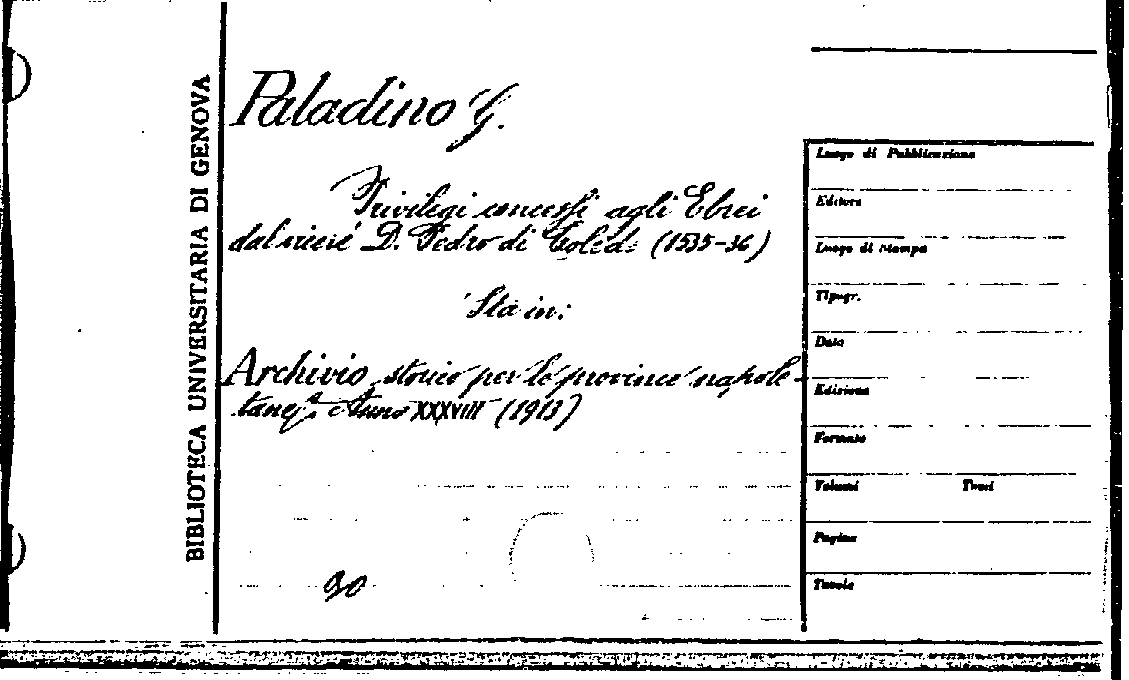 BIBLIOTECA UNIVERSITARIA DI GENOVA
Paladino G.
Privilegi concessi agli Ebrei
dal viceré D. Pedro di Toledo (1535-36)
Sta in:
Archivio storico per le province napole-
tane, Anno XXXVIII (1913)
90
Luogo di Pubblicazione
Editore
Luogo di stampa
Tipogr.
Data
Edizione
Formato
Volumi Tomi
Pagine
Tavole